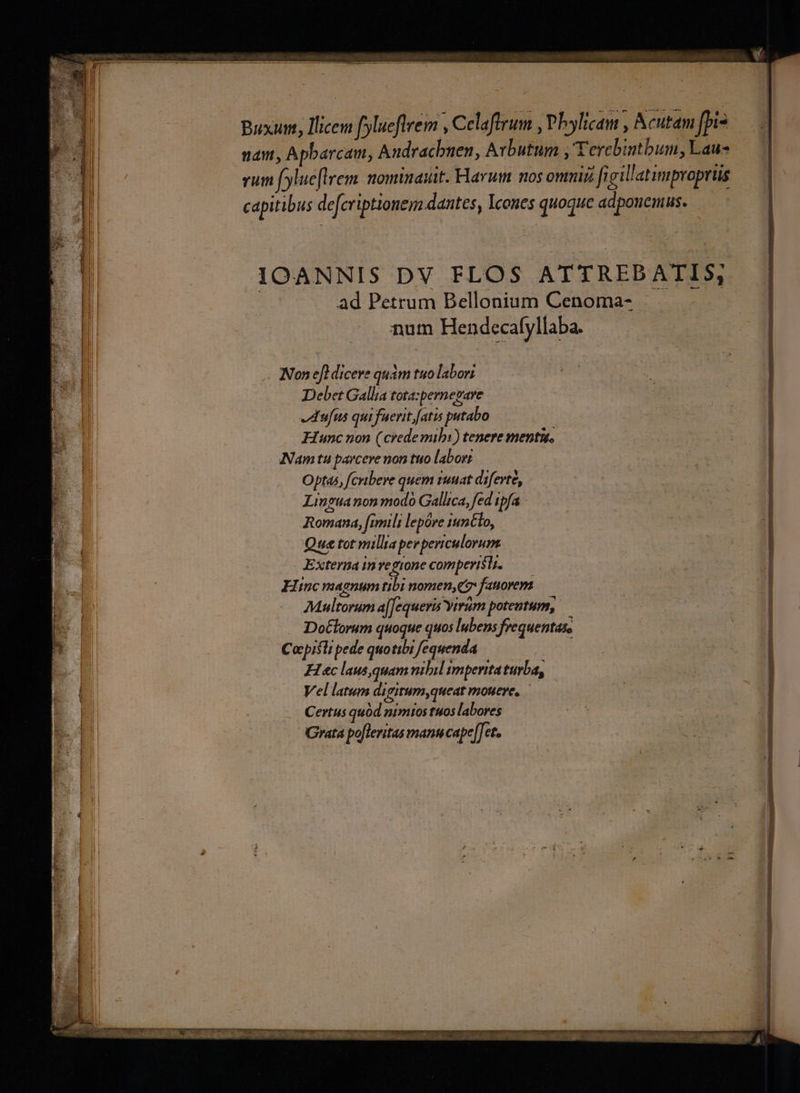 Buxum, Ilicem ſylueſtrem, Celaſtrum, Phylicam, Acutam ſpi-
nam, Apharcam, Andrachnen, Arbutum, Terebinthum, Lau-
rum ſylueſtrem nominauit. Harum nos omniũ ſigillatim propriis
capitibus deſcriptionem dantes, Icones quoque adponemus.
IOANNIS DV FLOS ATTREBATIS,
ad Petrum Bellonium Cenoma-
num Hendecaſyllaba.
Non eſt dicere quàm tuo labori
Debet Gallia tota: pernegare
Auſus qui fuerit, ſatis putabo
Hunc non (crede mihi) tenere mentẽ.
Nam tu parcere non tuo labori
Optas, ſcribere quem iuuat diſertè,
Lingua non modò Gallica, ſed ipſa
Romana, ſimili lepôre iuncto,
Quæ tot millia per periculorum
Externa in regione comperiſti.
Hinc magnum tibi nomen, & fauorem
Multorum aſſequeris virûm potentum,
Doctorum quoque quos lubens frequentas.
Cœpiſti pede quo tibi ſequenda
Hæc laus, quam nihil imperita turba,
Vel latum digitum, queat mouere.
Certus quòd nimios tuos labores
Grata poſteritas manu capeſſet.